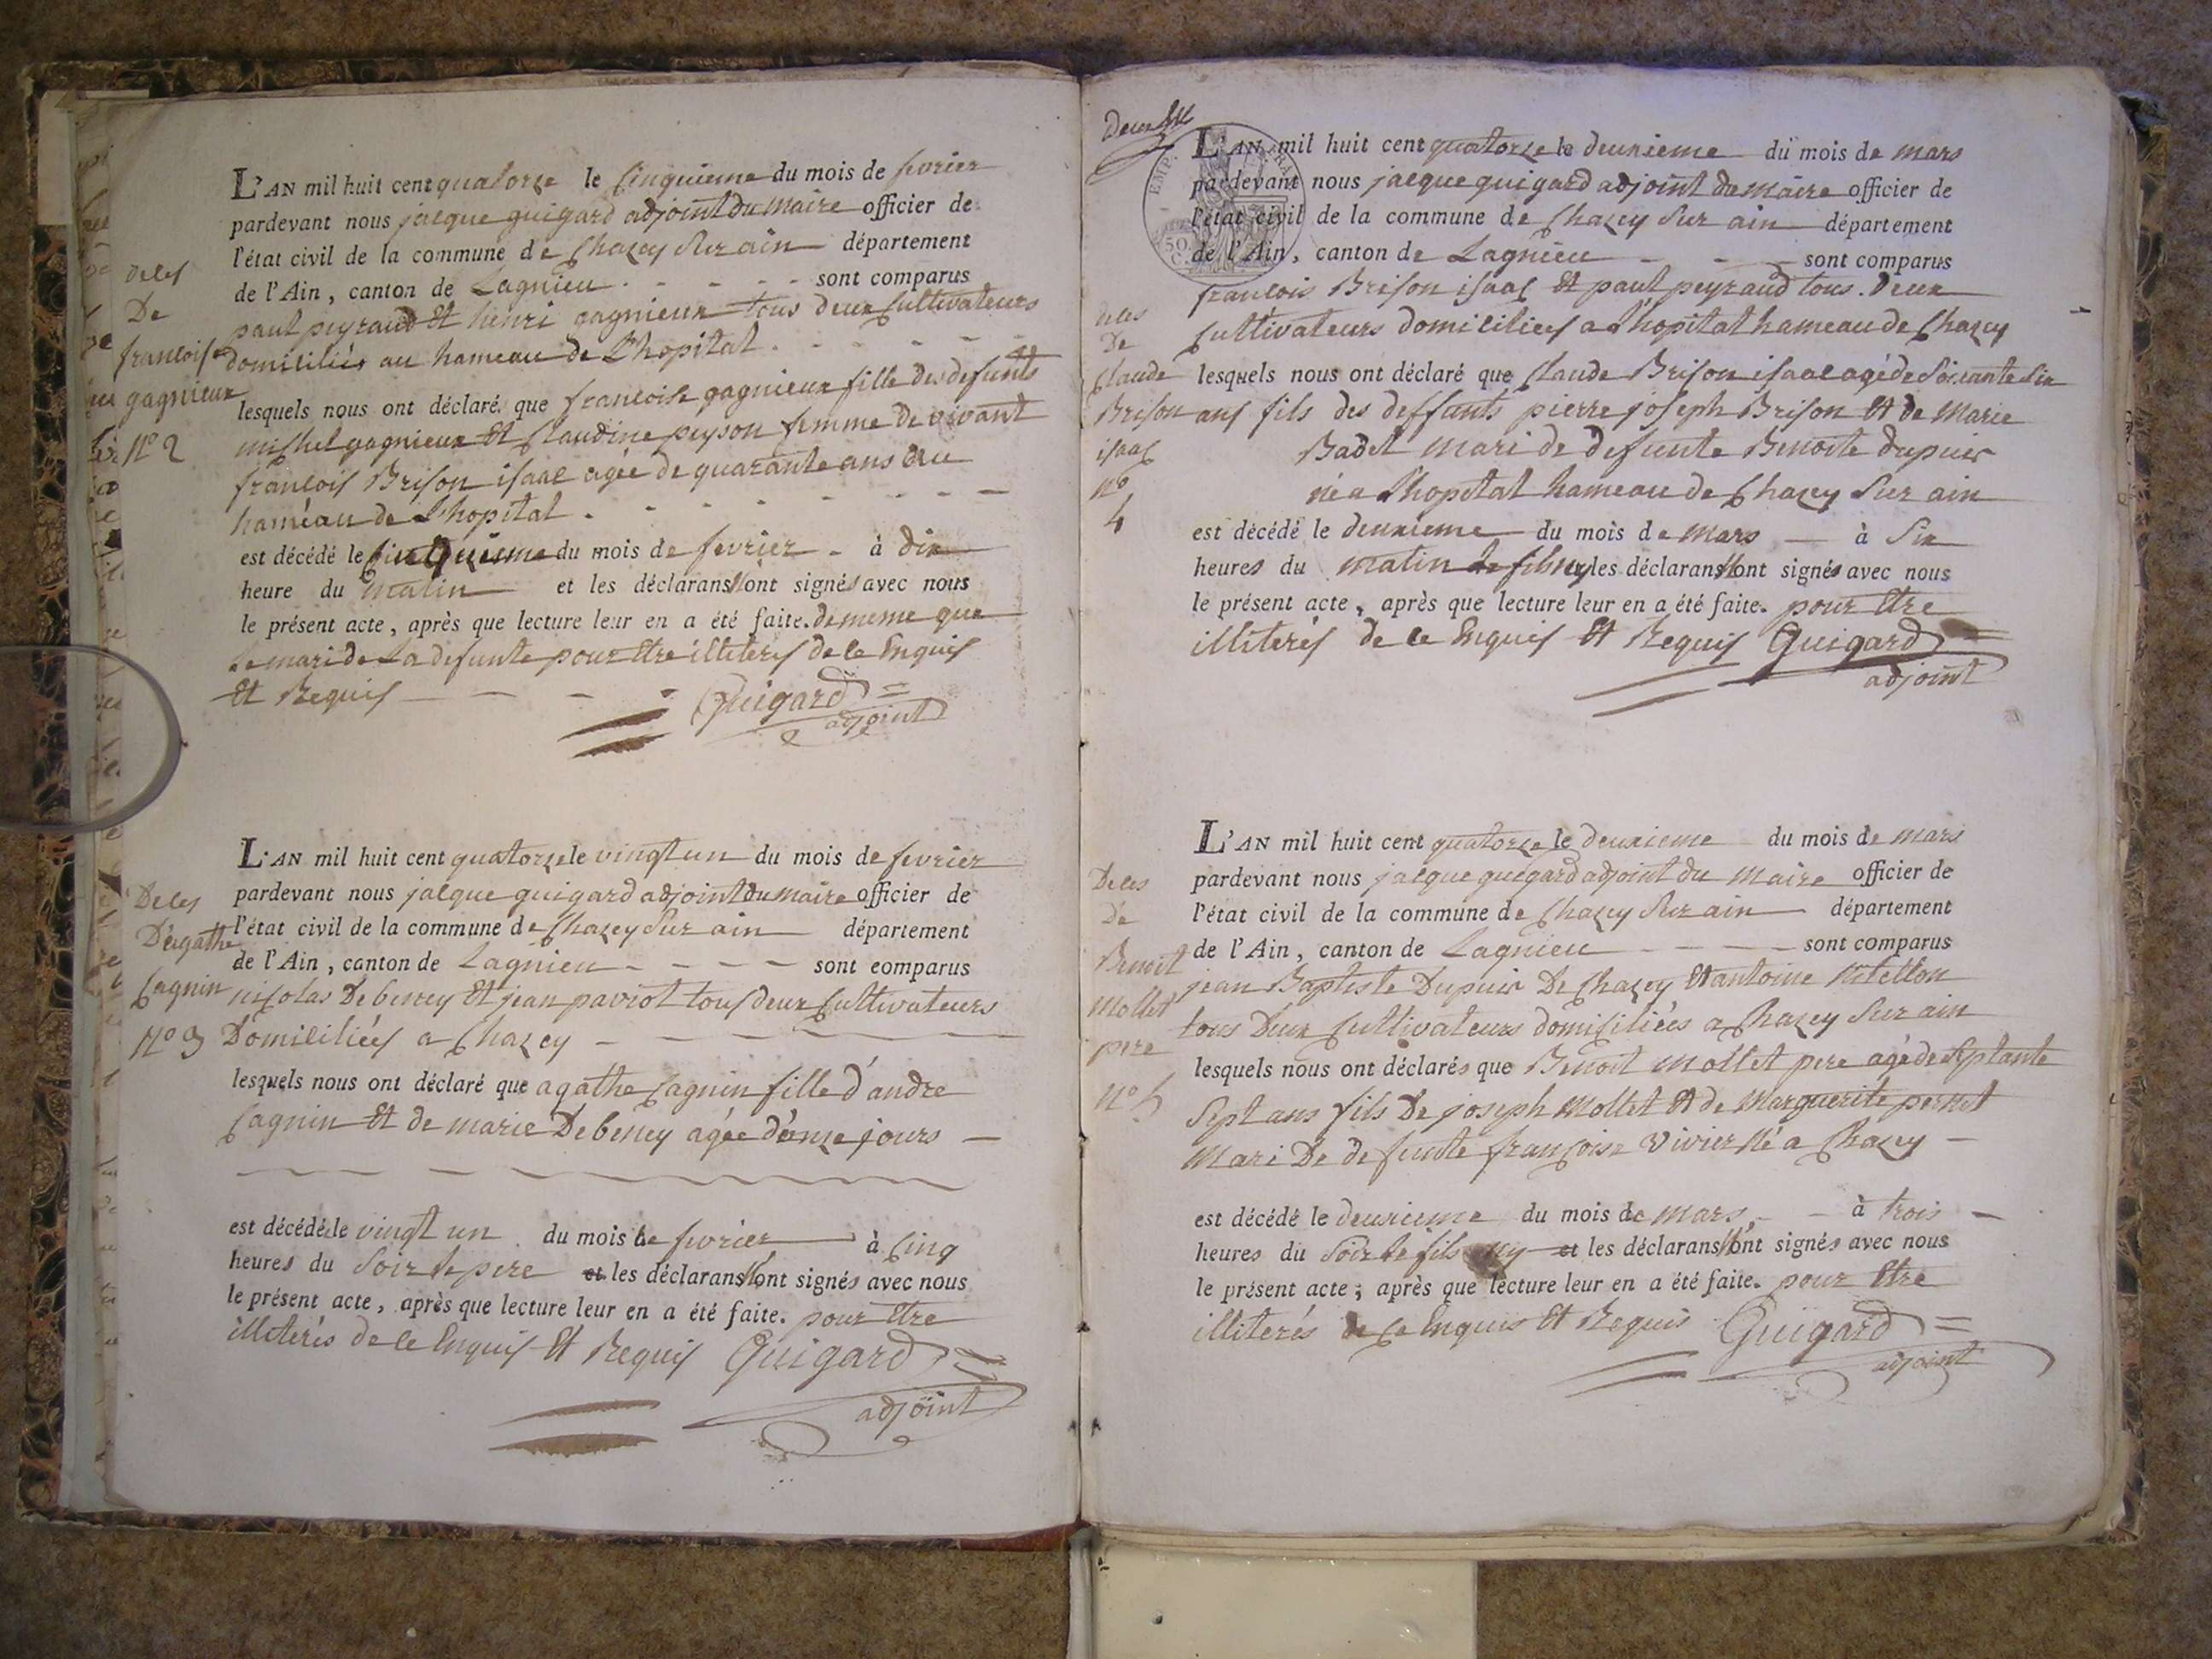 deces
De
francoise
gagnieux
N° 2
L'AN mil huit cent quatorze le cinquieme du mois de fevrier
pardevant nous jacque guigard adjoint du maire officier de
l'état civil de la commune de Chazey Sur ain département
de l'Ain, canton de Lagnieu - - - - sont comparus
paul peyraud Et henri gagnieux tous deux Cultivateurs
domiciliés au hameau de L'hopital - - - - -
lesquels nous ont déclaré que francoise gagnieux fille des defunts
michel gagnieux Et Claudine peyson femme de vivant
francois Brison isaac agée de quarante ans au
hameau de L'hopital - - - - - -
est décédé le cinquieme du mois de fevrier - à dix
heure du matin et les déclarans n'ont signés avec nous
le présent acte, après que lecture leur en a été faite. de meme que
Le mari de La defunte pour Etre illiterés de ce Enquis
Et Requis - - - Guigard
adjoint
Deces
D'agathe
Cagnin
N° 3
L'AN mil huit cent quatorze le vingt un du mois de fevrier
pardevant nous jacque guigard adjoint du maire officier de
l'état civil de la commune de Chazey Sur ain département
de l'Ain, canton de Lagnieu - - - - sont comparus
nicolas Debeney Et jean paviot tous deux Cultivateurs
Domiciliés a Chazey - - - - -
lesquels nous ont déclaré que agathe Cagnin fille d'andre
Cagnin Et de marie Debeney agée d'onze jours -
est décédée le vingt un du mois de fevrier à Cinq
heures du Soir le pere et les déclarans n'ont signés avec nous
le présent acte, après que lecture leur en a été faite. pour Etre
illiterés de ce Enquis Et Requis Guigard
adjoint
Deux
EMP. FRAN
50.
C.
deces
De
Claude
Brison
isaac
N°
4
L'AN mil huit cent quatorze le deuxieme du mois de mars
pardevant nous jacque guigard adjoint du maire officier de
l'état civil de la commune de Chazey Sur ain département
de l'Ain, canton de Lagnieu - - - sont comparus
francois Brison isaac Et paul peyraud tous Deux
Cultivateurs domiciliés a L'hopital hameau de Chazey
lesquels nous ont déclaré que Claude Brison isaac agé de Soixante Six
ans fils des deffunts pierre joseph Brison Et de Marie
Badet mari de defunte Benoite dupuis
né a L'hopital hameau de Chazey Sur ain
est décédé le deuxieme du mois de mars - à Six
heures du matin le fils ny les déclarans n'ont signés avec nous
le présent acte, après que lecture leur en a été faite. pour Etre
illiterés de ce Enquis Et Requis Guigard
adjoint
Deces
De
Benoit
Mollet
pere
N° 5
L'AN mil huit cent quatorze le deuxieme du mois de mars
pardevant nous jacque guigard adjoint du maire officier de
l'état civil de la commune de Chazey Sur ain département
de l'Ain, canton de Lagnieu - - - - sont comparus
jean Baptiste Dupuis De Chazey Et antoine
tous Deux Cultivateurs domiciliés a Chazey Sur ain
lesquels nous ont déclarés que Benoit Mollet pere agé de Septante
Sept ans fils De joseph Mollet Et de Marguerite pernet
Mari De defunte françoise Vivier Né a Chazey -
est décédé le deuxieme du mois de mars - - à trois -
heures du Soir le fils ny et les déclarans n'ont signés avec nous
le présent acte; après que lecture leur en a été faite. pour Etre
illiterés de ce Enquis Et Requis Guigard
adjoint